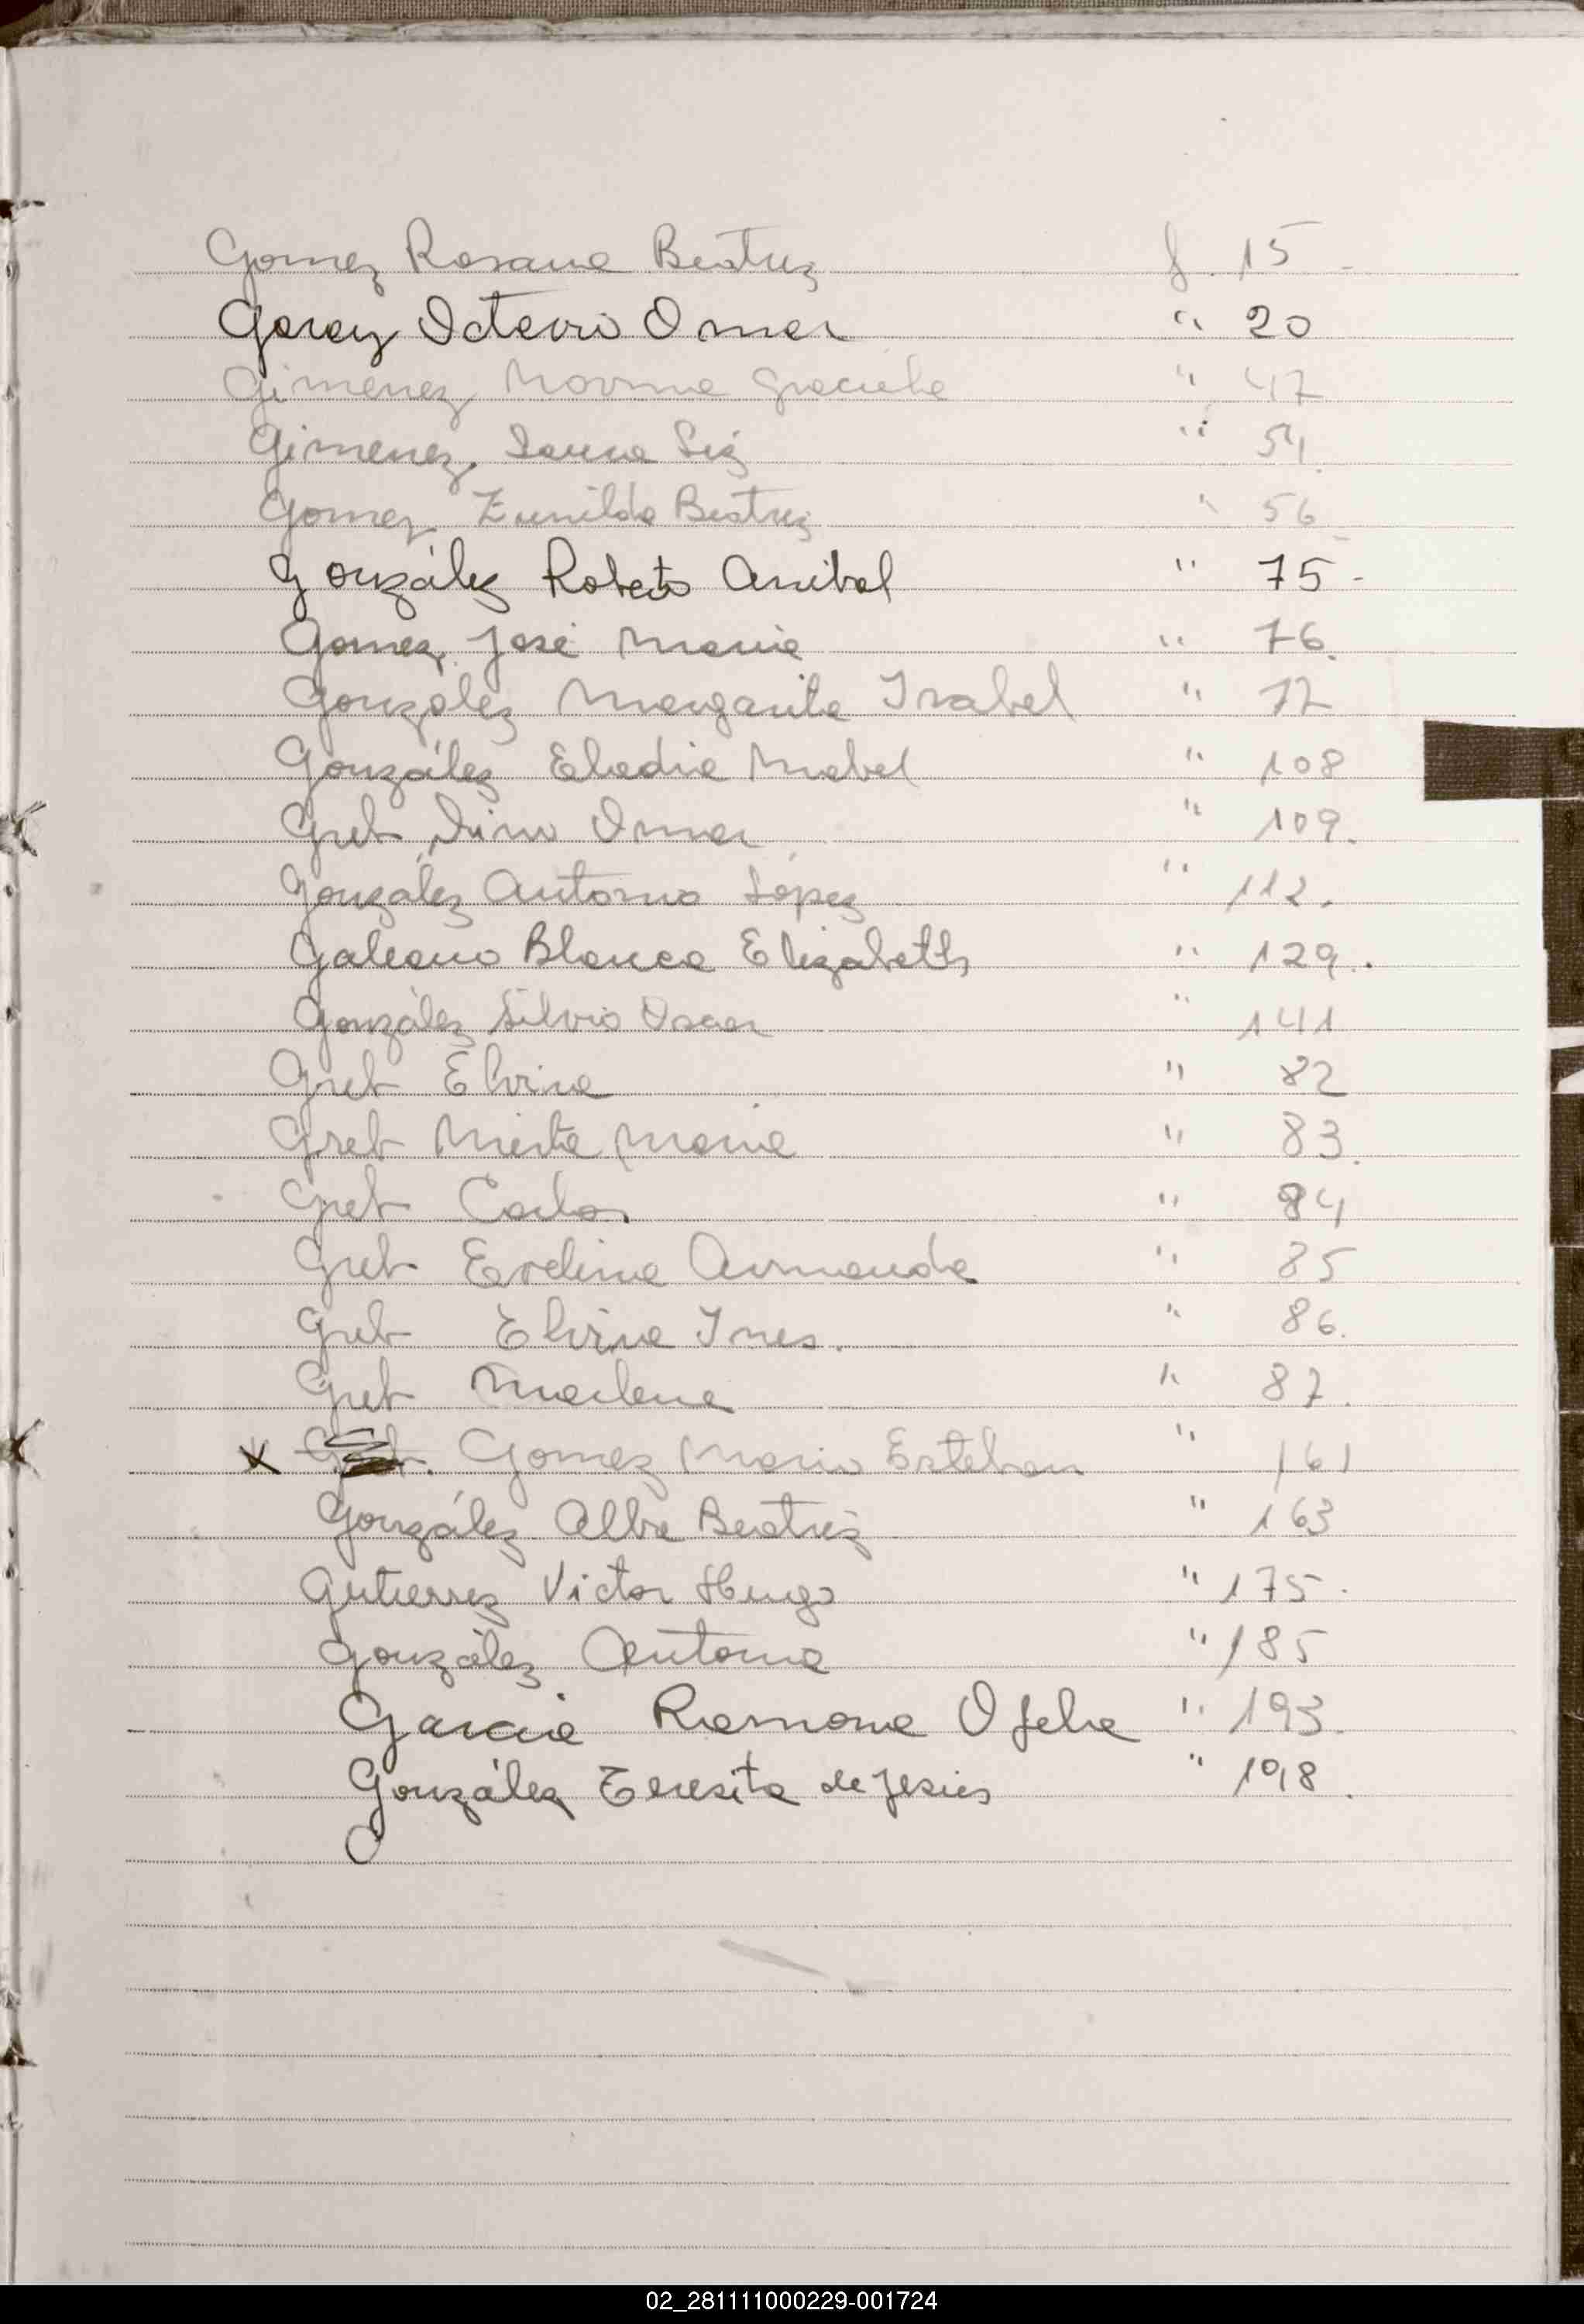 Gomez Rosana Beatriz f. 15 -
Garay Octavio Omar " 20
Gimenez Norma Graciela " 47
Gimenez, Luz " 54.
Gomez Zunilda Beatriz " 56
González Roberto Anibal " 75 -
Gomez, José Maria " 76.
González Margarita Isabel " 77
González Eladia Mabel " 108
Greb Dino Omar " 109.
González Antonio López " 112.
Galeano Blanca Elizabeth " 129.
González Silvio Oscar " 141
Greb Elvira " 82
Greb Mirta Maria " 83.
Greb Carlos " 84
Greb Evelina Armanda " 85
Greb Elvira Ines. " 86.
Greb Marlene " 87.
x Gomez Mario Esteban " 161
González Alba Beatriz " 163
Gutierrez Victor Hugo " 175.
González Antonia " 185
Garcia Ramona Ofelia " 193.
González Teresita de Jesús " 198.
02_281111000229-001724